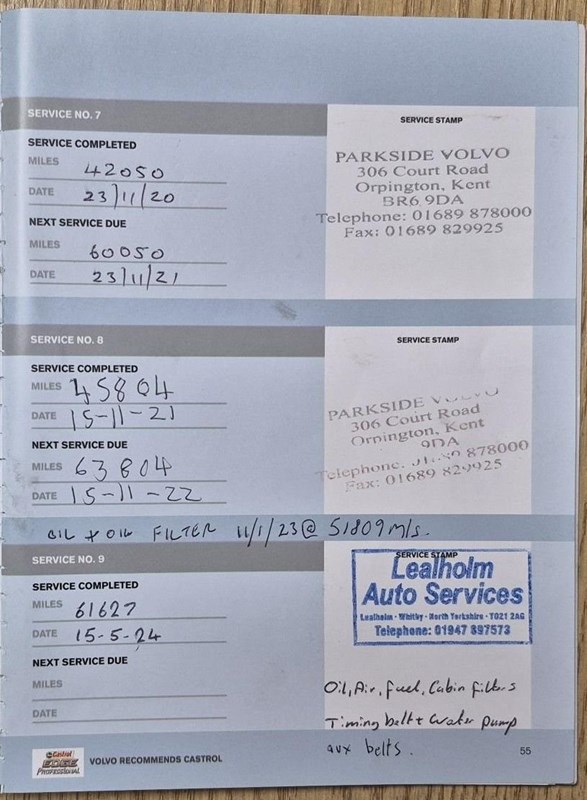 SERVICE NO. 7
SERVICE STAMP
SERVICE COMPLETED
MILES 42050
DATE 23/11/20
NEXT SERVICE DUE
MILES 60050
DATE 23/11/21
PARKSIDE VOLVO
306 Court Road
Orpington, Kent
BR6 9DA
Telephone: 01689 878000
Fax: 01689 829925
SERVICE NO. 8
SERVICE STAMP
SERVICE COMPLETED
MILES 45804
DATE 15-11-21
NEXT SERVICE DUE
MILES 63804
DATE 15-11-22
PARKSIDE
306 Court Road
Orpington, Kent
9DA
Telephone. 878000
Fax: 01689 829925
OIL + OIL FILTER 11/1/23 @ 51809 m/s.
SERVICE NO. 9
SERVICE STAMP
SERVICE COMPLETED
MILES 61627
DATE 15-5-24
NEXT SERVICE DUE
MILES
DATE
Lealholm
Auto Services
Lealholm - Whitby - North Yorkshire - YO21 2AG
Telephone: 01947 897573
Oil, Air, Fuel, Cabin filters
Timing belt + Water pump
aux belts.
Castrol
EDGE
PROFESSIONAL
VOLVO RECOMMENDS CASTROL
55